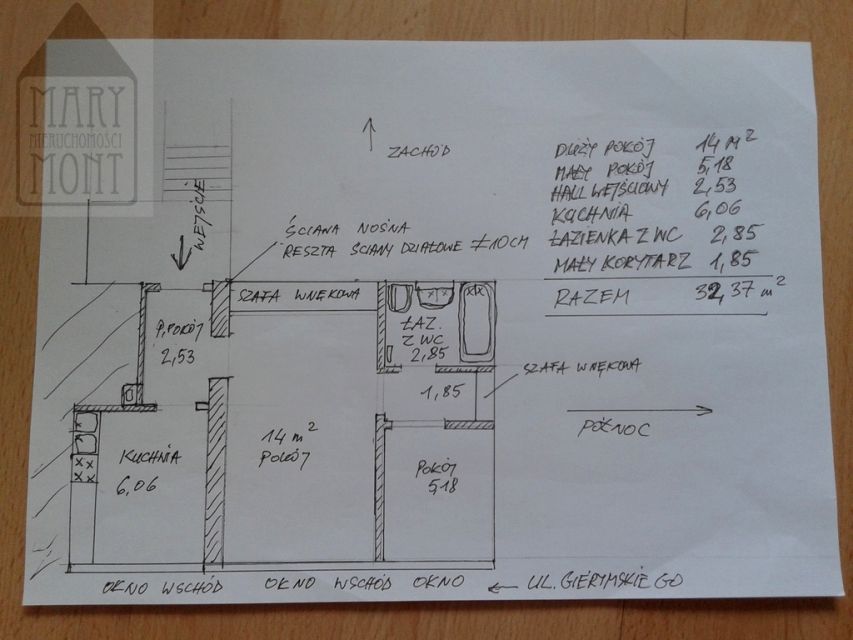 MARY
NIERUCHOMOŚCI
MONT
ZACHÓD
WEJŚCIE
ŚCIANA NOŚNA
RESZTA ŚCIANY DZIAŁOWE ≠10CM
DUŻY POKÓJ 14 M²
MAŁY POKÓJ 5,18
HALL WEJŚCIOWY 2,53
KUCHNIA 6,06
ŁAZIENKA Z WC 2,85
MAŁY KORYTARZ 1,85
RAZEM 32,37 m²
SZAFA WNĘKOWA
P.POKÓJ
2,53
ŁAZ.
Z WC
2,85
SZAFA WNĘKOWA
1,85
PÓŁNOC
KUCHNIA
6,06
14 m²
POKÓJ
POKÓJ
5,18
OKNO WSCHÓD OKNO WSCHÓD OKNO
UL. GIERYMSKIEGO